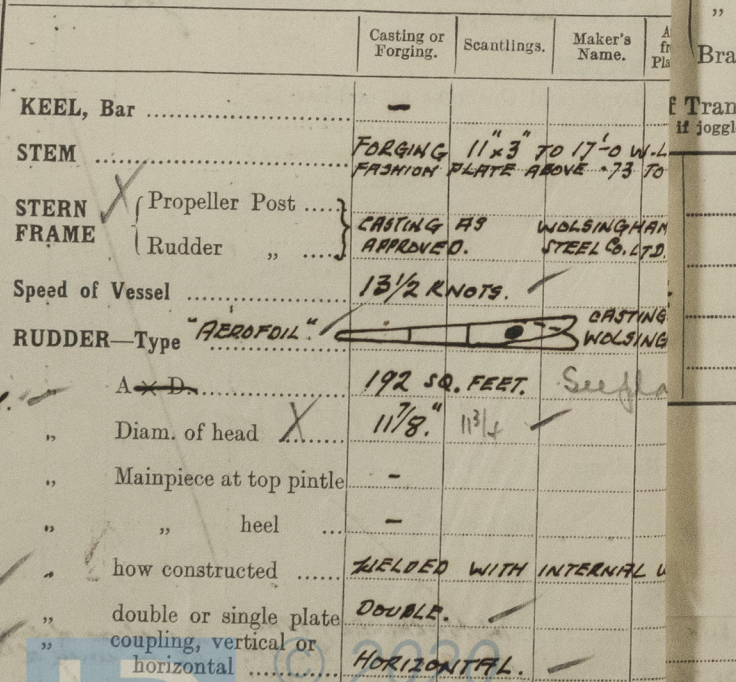 Casting or Forging. Scantlings. Maker's Name.
KEEL, Bar –
STEM FORGING 11"x3" TO 17'-0 W.L
FASHION PLATE ABOVE .73 TO
STERN FRAME Propeller Post
Rudder „
CASTING AS APPROVED. WOLSINGHAM STEEL Co. LTD.
Speed of Vessel 13½ KNOTS.
RUDDER—Type "AEROFOIL" CASTING WOLSING
„ A x D. 192 SQ. FEET.
„ Diam. of head 11 7/8." 11¾
„ Mainpiece at top pintle –
„ „ heel –
„ how constructed WELDED WITH INTERNAL
„ double or single plate DOUBLE.
„ coupling, vertical or horizontal HORIZONTAL.
„
Bra
f Tran
if joggl
© 2020